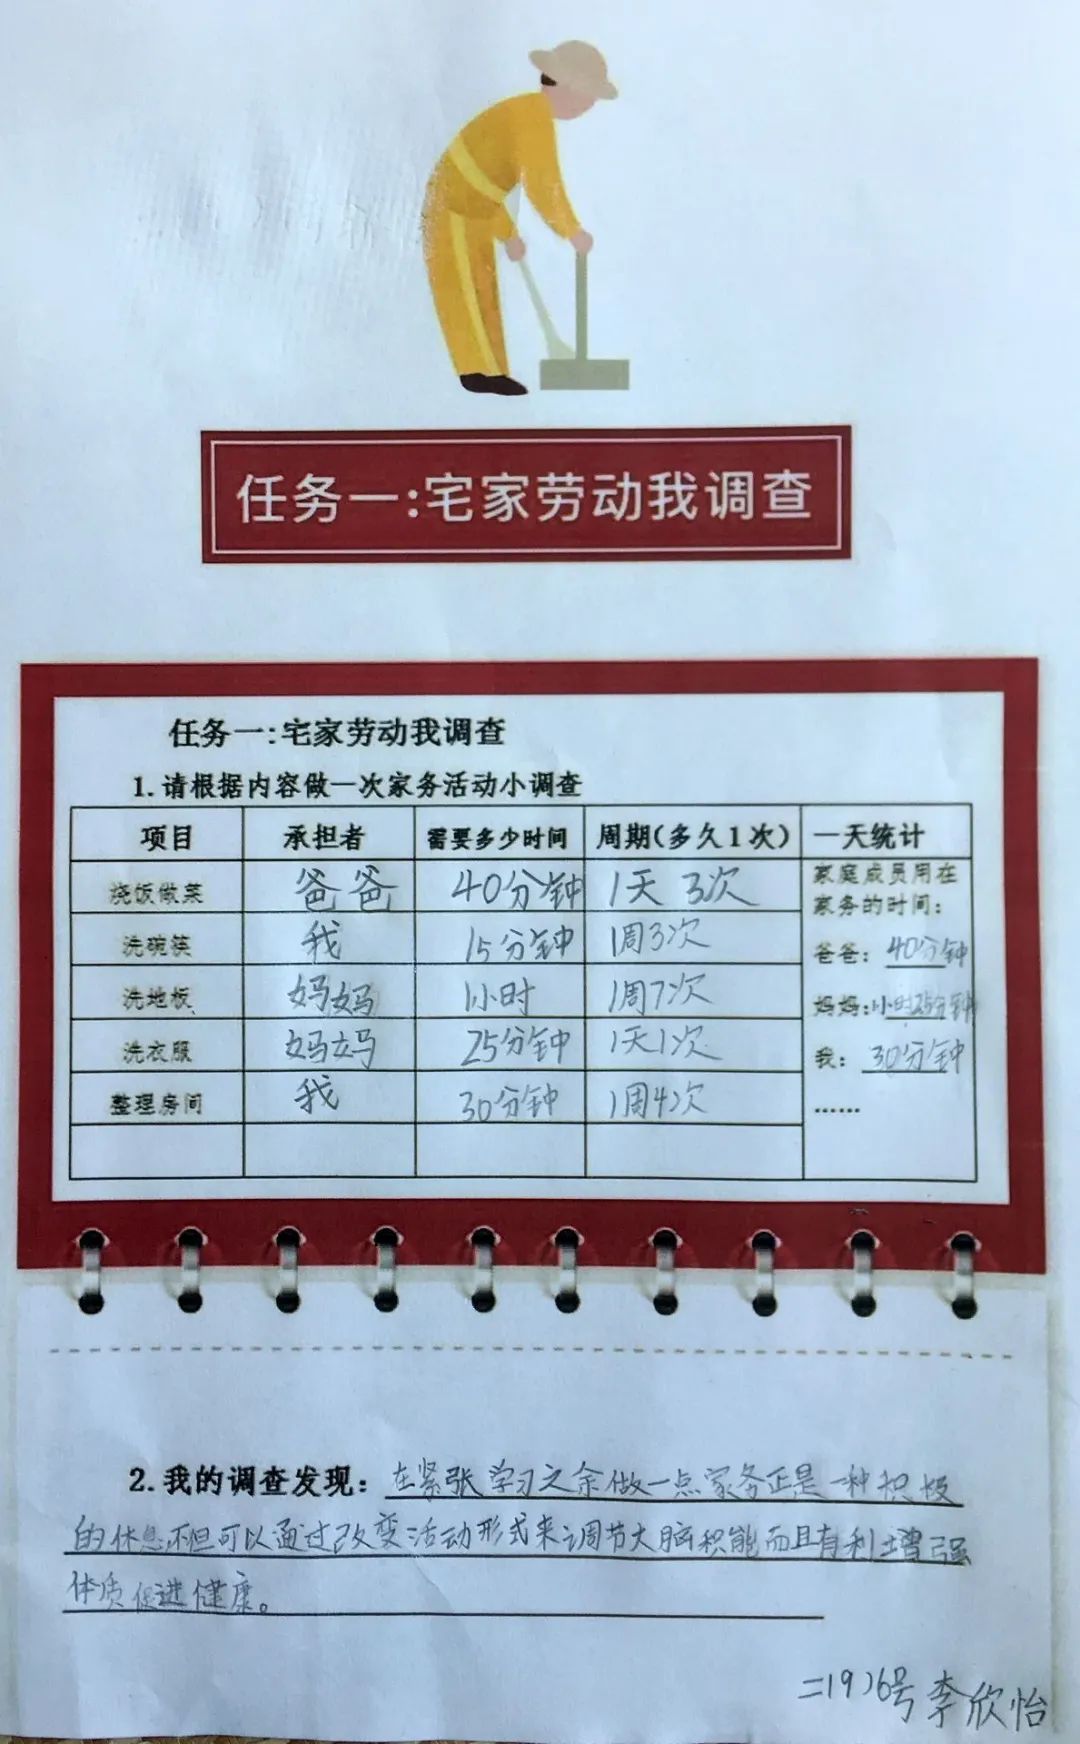 任务一:宅家劳动我调查
任务一:宅家劳动我调查
1.请根据内容做一次家务活动小调查
项目 承担者 需要多少时间 周期(多久1次) 一天统计
烧饭做菜 爸爸 40分钟 1天3次
洗碗筷 我 15分钟 1周3次
洗地板 妈妈 1小时 1周7次
洗衣服 妈妈 25分钟 1天1次
整理房间 我 30分钟 1周4次
家庭成员用在
家务的时间:
爸爸: 40分钟
妈妈:1小时25分钟
我: 30分钟
……
2.我的调查发现: 在紧张学习之余做一点家务正是一种积极
的休息不但可以通过改变活动形式来调节大脑积能而且有利增强
体质促进健康。
二19)6号李欣怡